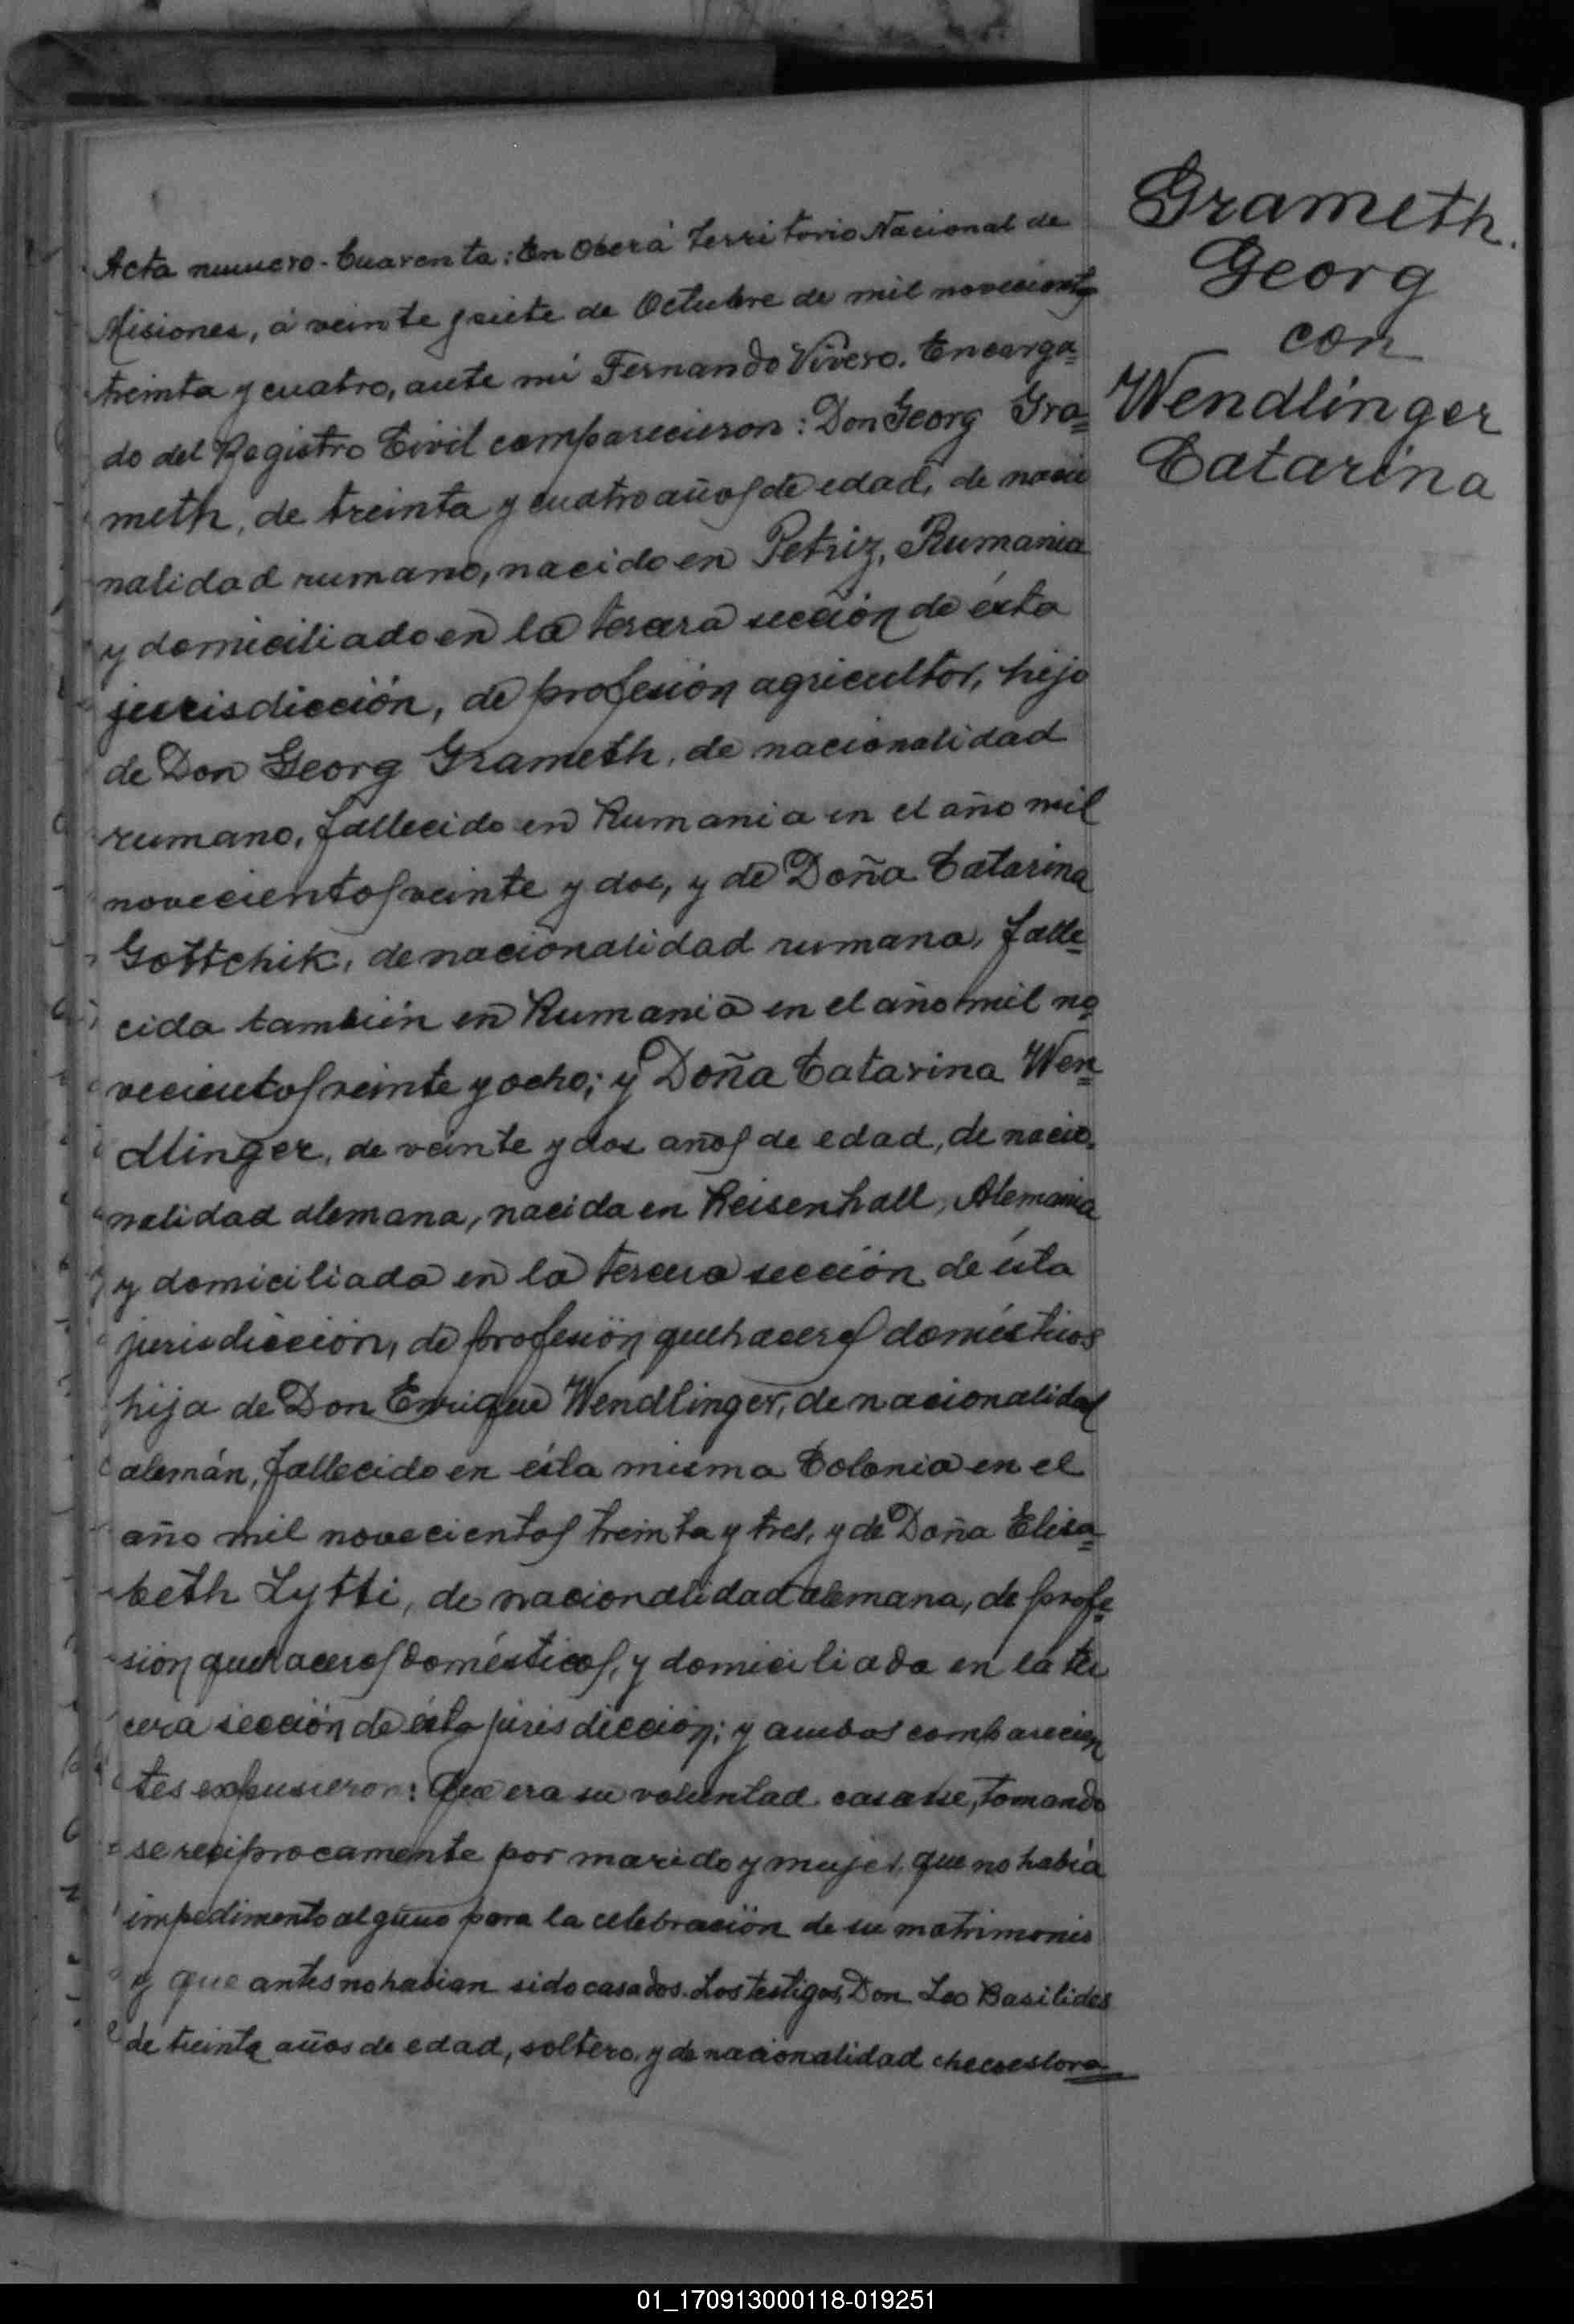 Grameth.
Georg
con
Wendlinger
Catarina
Acta numero. Cuarenta: En Oberá Territorio Nacional de
Misiones, á veinte y siete de Octubre de mil novecientos
treinta y cuatro, ante mi Fernando Vivero. Encarga=
do del Registro Civil comparecieron: Don Georg Gra=
meth, de treinta y cuatro años de edad, de nacio
nalidad rumano, nacido en Petriz, Rumania
y domiciliado en la tercera sección de ésta
jurisdicción, de profesión agricultor, hijo
de Don Georg Grameth, de nacionalidad
rumano, fallecido en Rumania en el año mil
novecientos veinte y dos, y de Doña Catarina
Gottchik, de nacionalidad rumana, falle=
cida también en Rumania en el año mil no
vecientos veinte y ocho; y Doña Catarina Wen=
dlinger, de veinte y dos años de edad, de nacio=
nalidad alemana, nacida en Reisenhall, Alemania
y domiciliada en la tercera sección de ésta
jurisdicción, de profesión quehaceres domésticos
hija de Don Enrique Wendlinger, de nacionalidad
alemán, fallecido en ésta misma Colonia en el
año mil novecientos treinta y tres, y de Doña Elisa=
beth Lytti, de nacionalidad alemana, de profe=
sión quehaceres domésticos, y domiciliada en la ter
cera sección de ésta jurisdicción; y ambos comparecien
tes expusieron: Que era su voluntad casarse, tomando
se reciprocamente por marido y mujer, que no había
impedimento alguno para la celebración de su matrimonio
y que antes no habian sido casados. Los testigos, Don Leo Basilides
de treinta años de edad, soltero, y de nacionalidad checoeslova
01_170913000118-019251